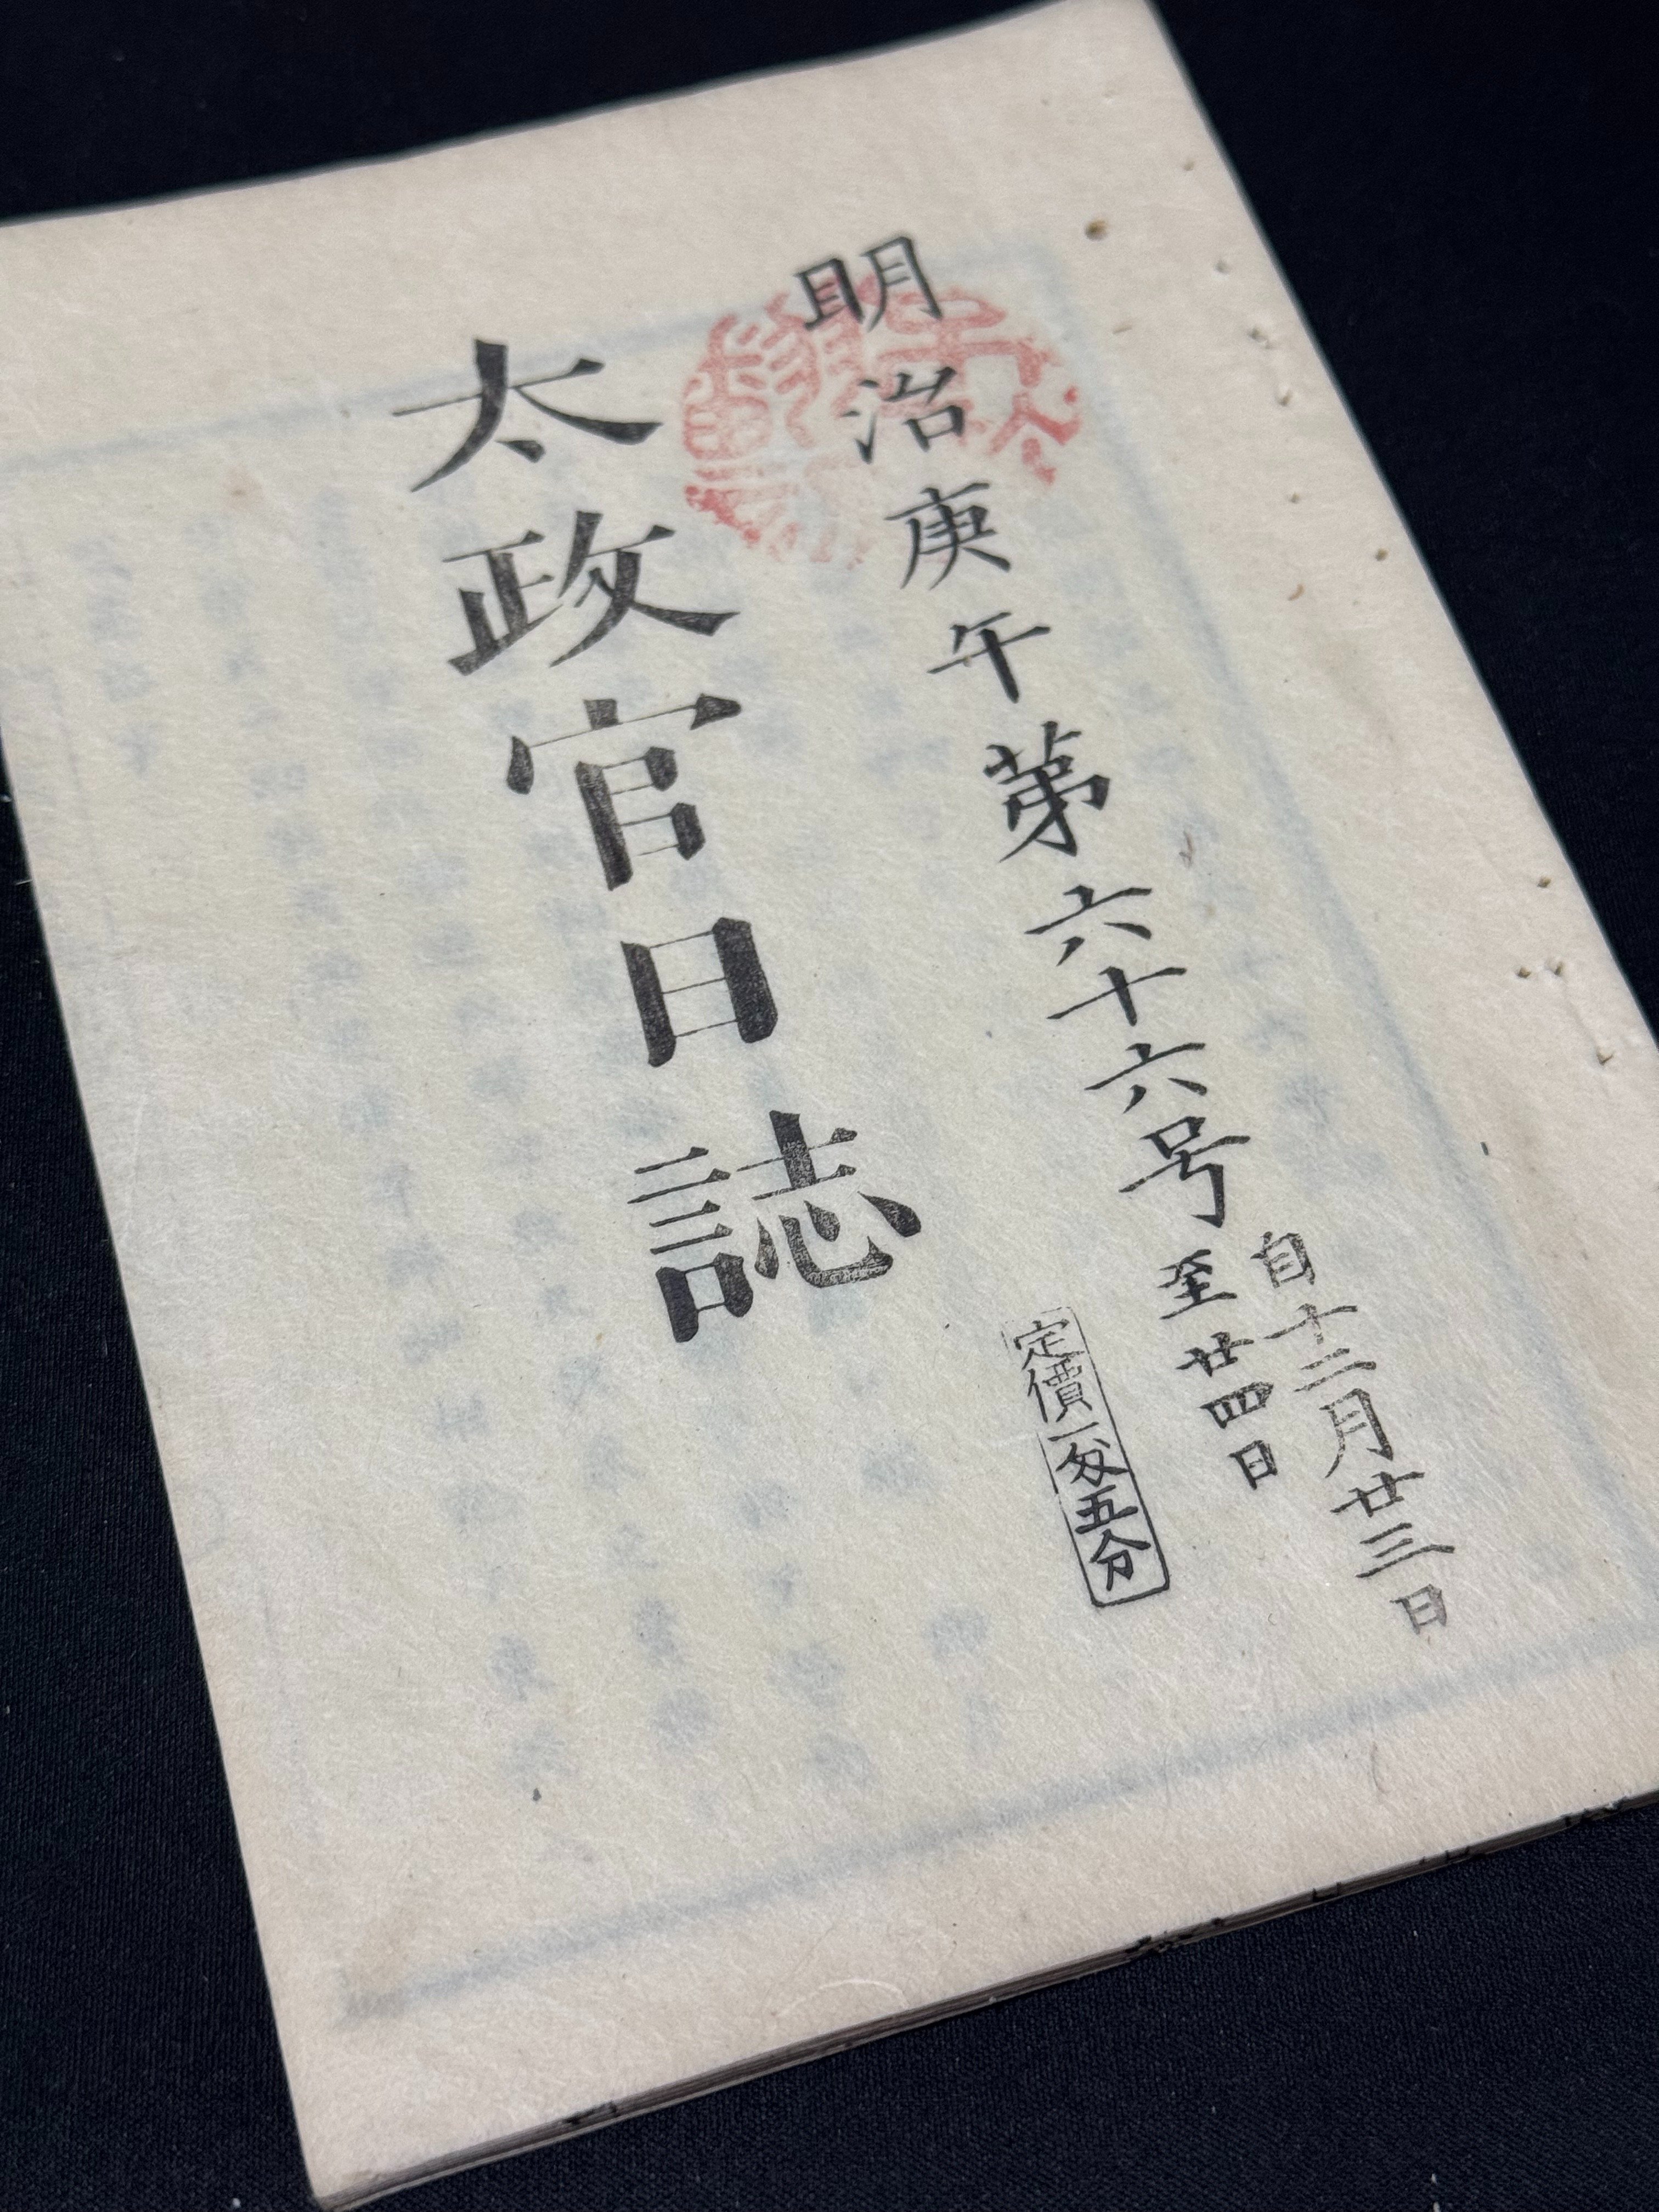 明治庚午第六十六号
自十二月廿三日
至廿四日
定價一匁五分
太政官日誌